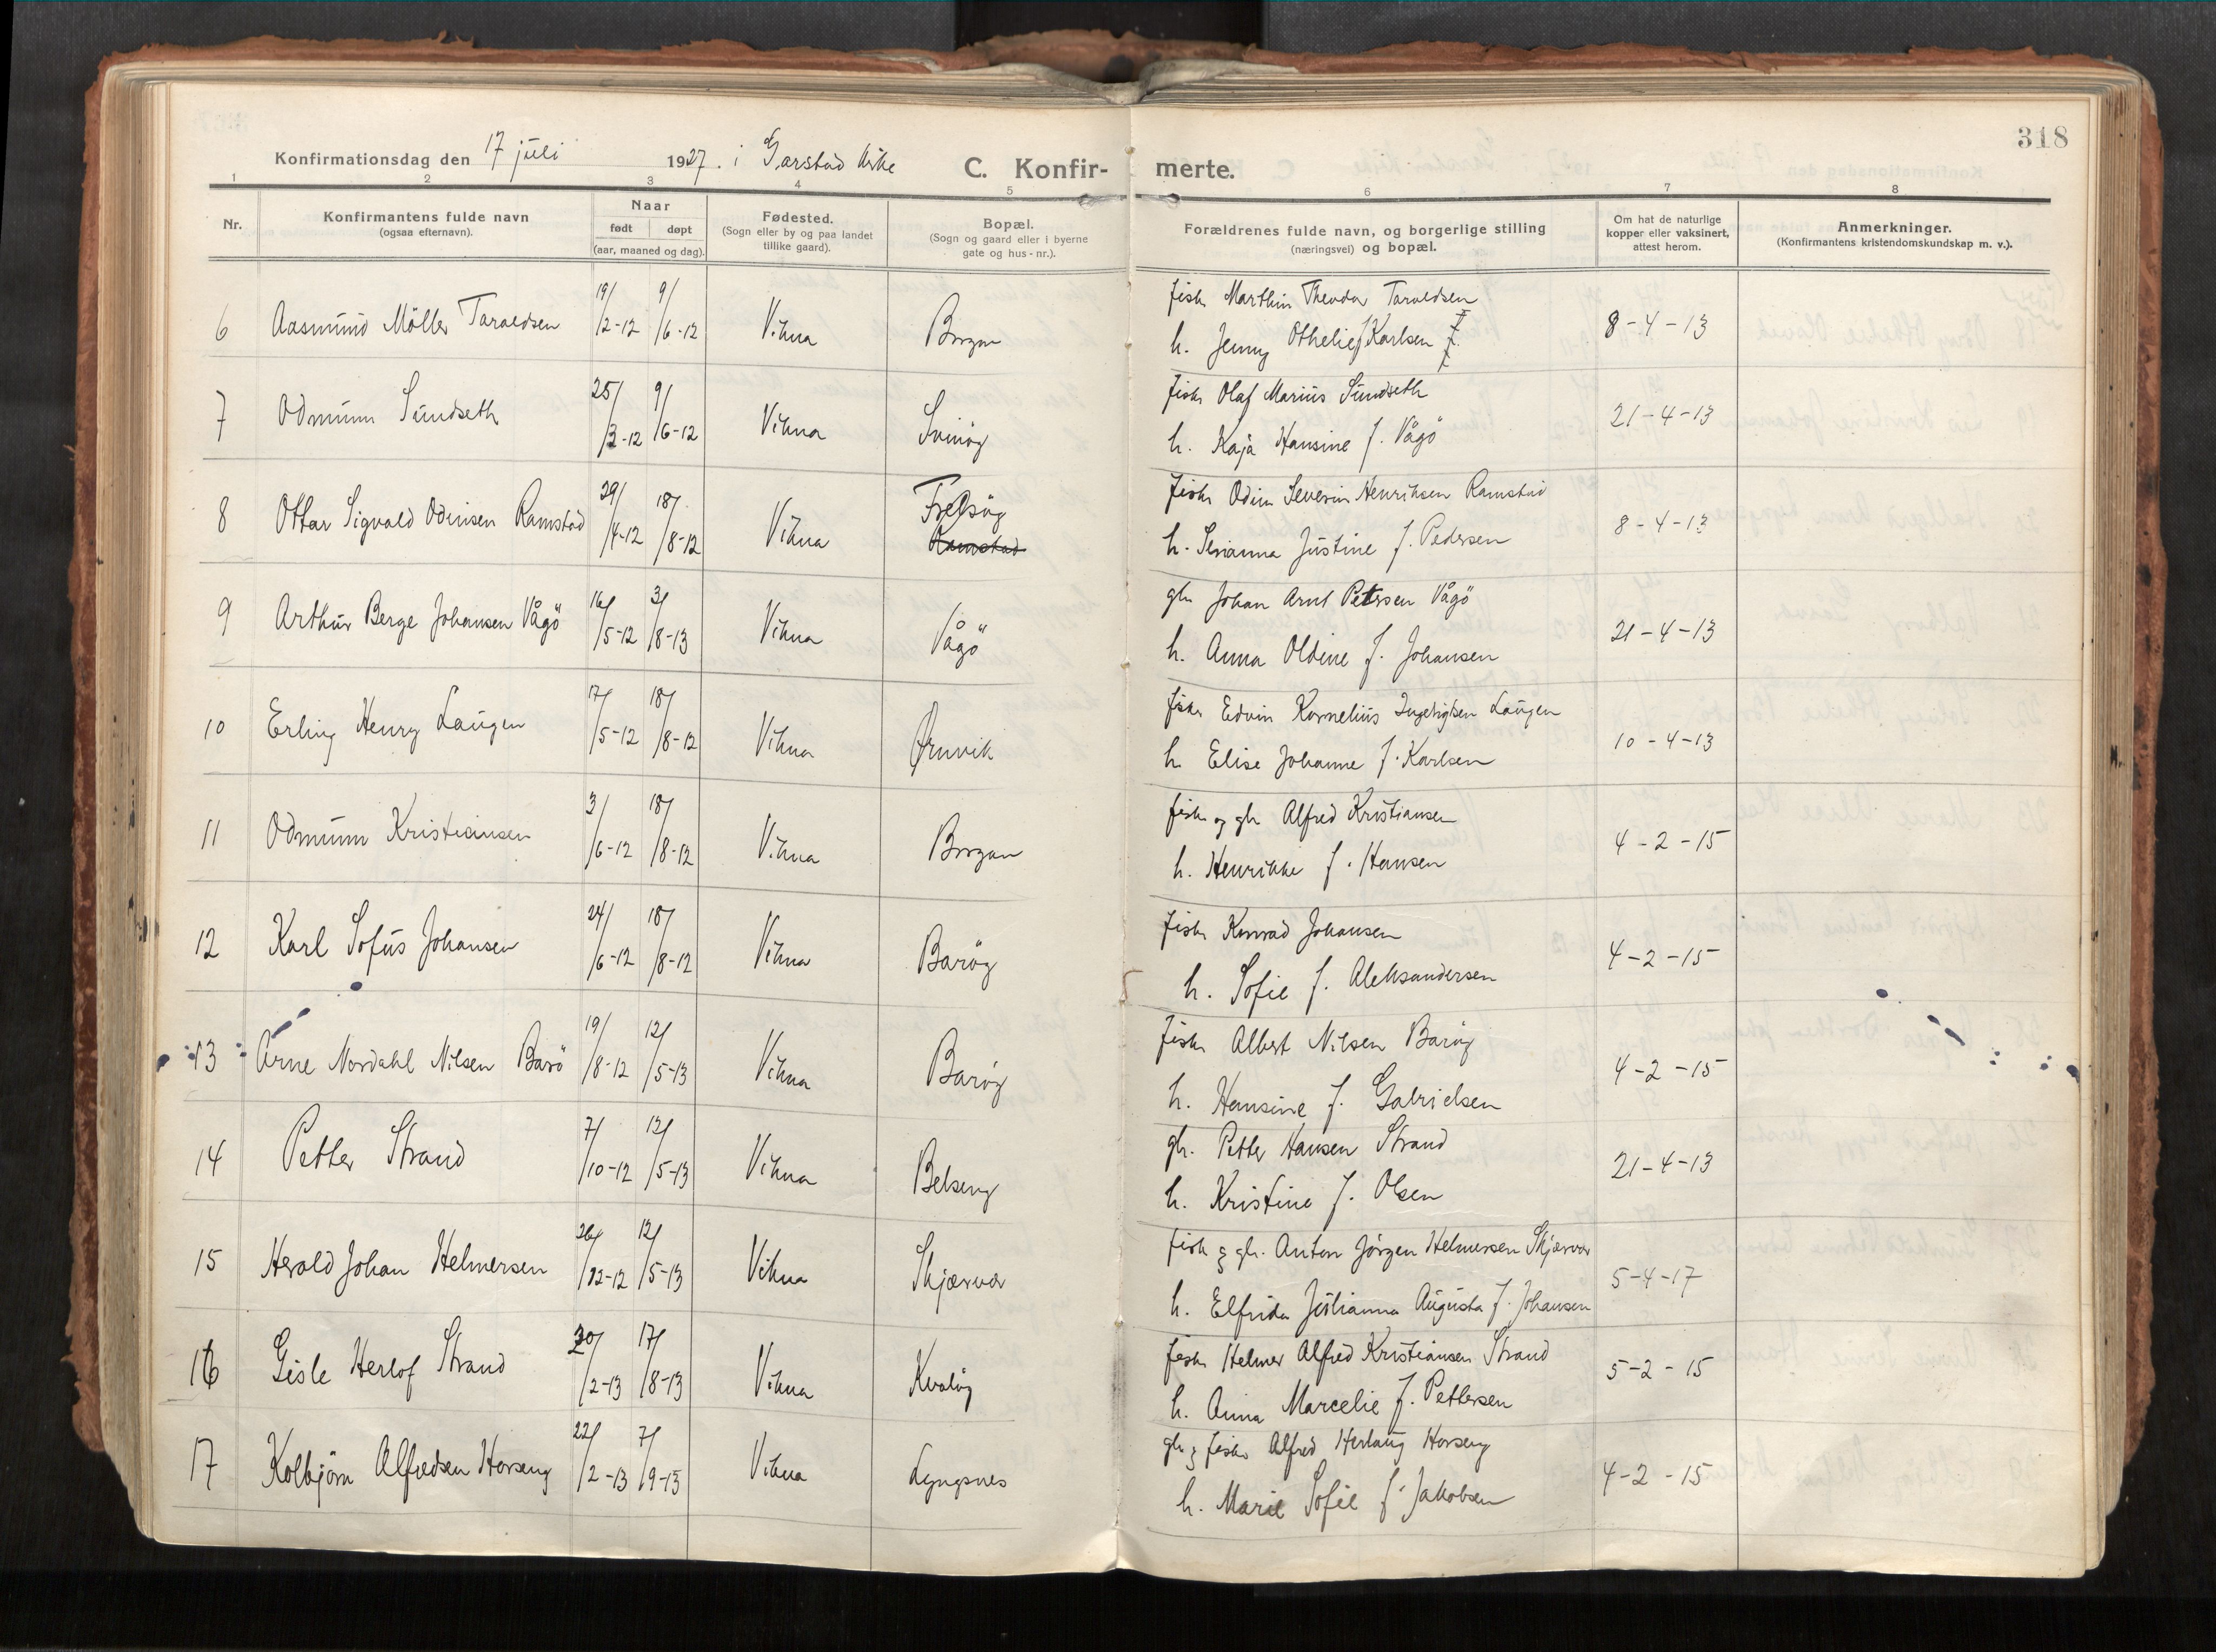 318
Konfirmationsdag den 17 juli 1927. i Garstad kirke C. Konfir- merte.
1 2 3 4 5 6 7 8
Nr. Konfirmantens fulde navn (ogsaa efternavn). Naar født døpt (aar, maaned og dag). Fødested. (Sogn eller by og paa landet tillike gaard). Bopæl. (Sogn og gaard eller i byerne gate og hus-nr.). Forældrenes fulde navn, og borgerlige stilling (næringsvei) og bopæl. Om hat de naturlige kopper eller vaksinert, attest herom. Anmerkninger. (Konfirmantens kristendomskundskap m. v.).
6 Aasmund Möller Taraldsen 19/2-12 9/6-12 Vikna Borgan fisker Marthin Theodor Taraldsen 8-4-13
h. Jenny Othelie f Karlsen
7 Odmunn Sundseth 25/3-12 9/6-12 Vikna Svinöy fisker Olaf Marius Sundseth 21-4-13
h. Kaja Hansine f. Vågö
8 Ottar Sigvald Odinsen Ramstad 29/4-12 18/8-12 Vikna Frelsöy fisker Odin Severin Henriksen Ramstad 8-4-13
Ramstad h. Serianna Justine f. Pedersen
9 Arthur Berge Johansen Vågö 16/5-12 3/8-13 Vikna Vågö gbr Johan Arnt Petersen Vågö 21-4-13
h. Anna Oldine f. Johansen
10 Erling Henry Laugen 17/5-12 18/8-12 Vikna Ørnvik fisker Edvin Kornelius Ingebrigtsen Laugen 10-4-13
h. Elise Johanne f. Karlsen
11 Odmunn Kristiansen 3/6-12 18/8-12 Vikna Borgan fisker og gbr Alfred Kristiansen 4-2-15
h. Henrikke f. Hansen
12 Karl Sofus Johansen 24/6-12 18/8-12 Vikna Barøy fisker Konrad Johansen 4-2-15
h. Sofie f. Aleksandersen
13 Arne Nordahl Nilsen Barö 19/8-12 12/5-13 Vikna Barøy fisker Albert Nilsen Barøy 4-2-15
h. Hansine f. Gabrielsen
14 Petter Strand 7/10-12 12/5-13 Vikna Belseng gbr. Petter Hansen Strand 21-4-13
h. Kristine f. Olsen
15 Herold Johan Helmersen 26/12-12 12/5-13 Vikna Skjærvær fisk og gbr. Anton Jörgen Helmersen Skjærvær 5-4-17
h. Elfrida Julianna Augusta f. Johansen
16 Gisle Herlof Strand 20/2-13 17/8-13 Vikna Kvaløy fisker Helmer Alfred Kristiansen Strand 5-2-15
h. Anna Marcelie f. Pettersen
17 Kolbjörn Alfredsen Horseng 22/2-13 7/9-13 Vikna Lyngsnes gbr og fisker Alfred Herlaug Horseng 4-2-15
h. Marie Sofie f. Jakobsen